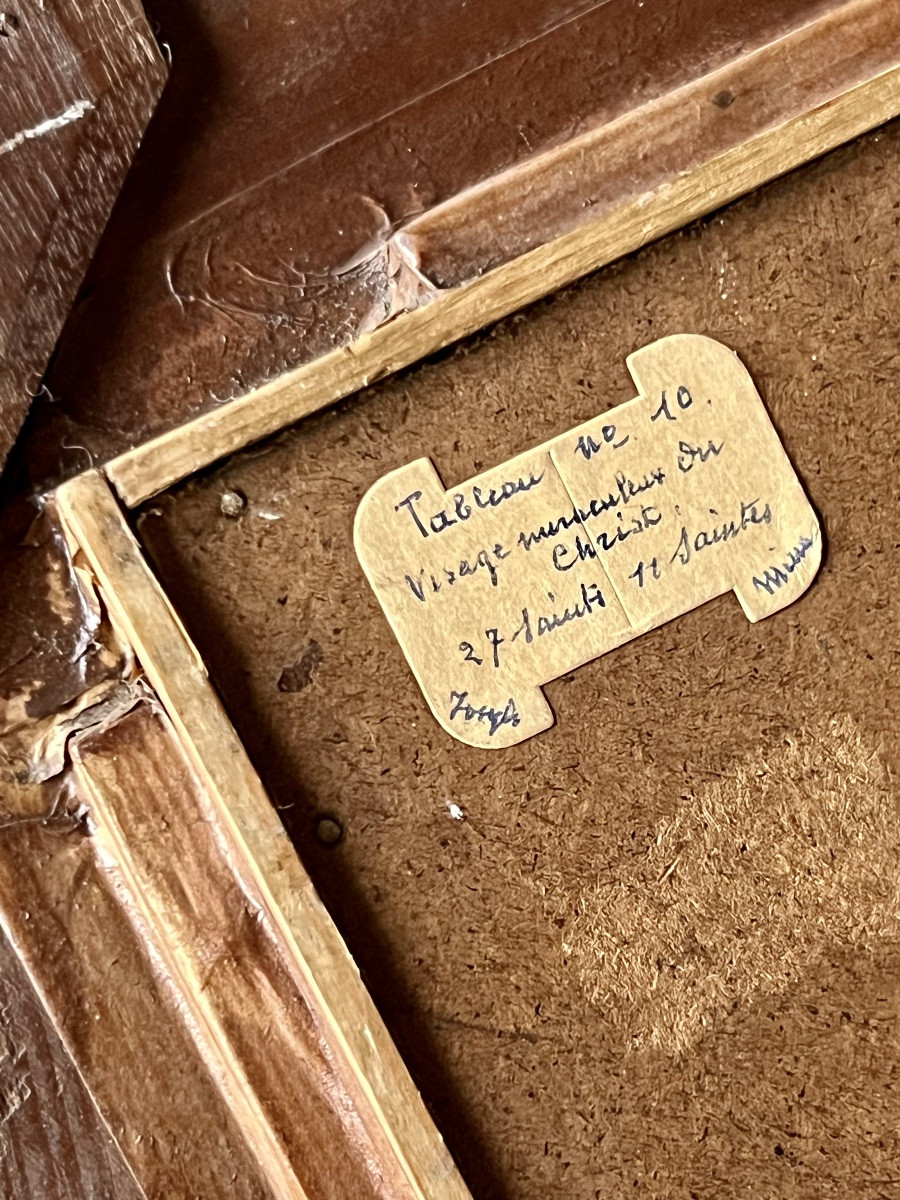 Tableau no 10.
Visage miraculeux du
Christ.
27 Saints 11 Saintes
Joseph